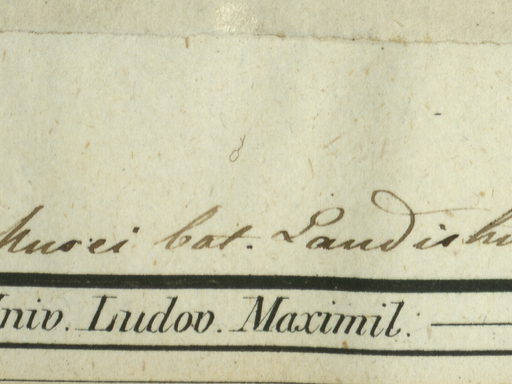 Musei bot. Landishu
Univ. Ludov. Maximil.